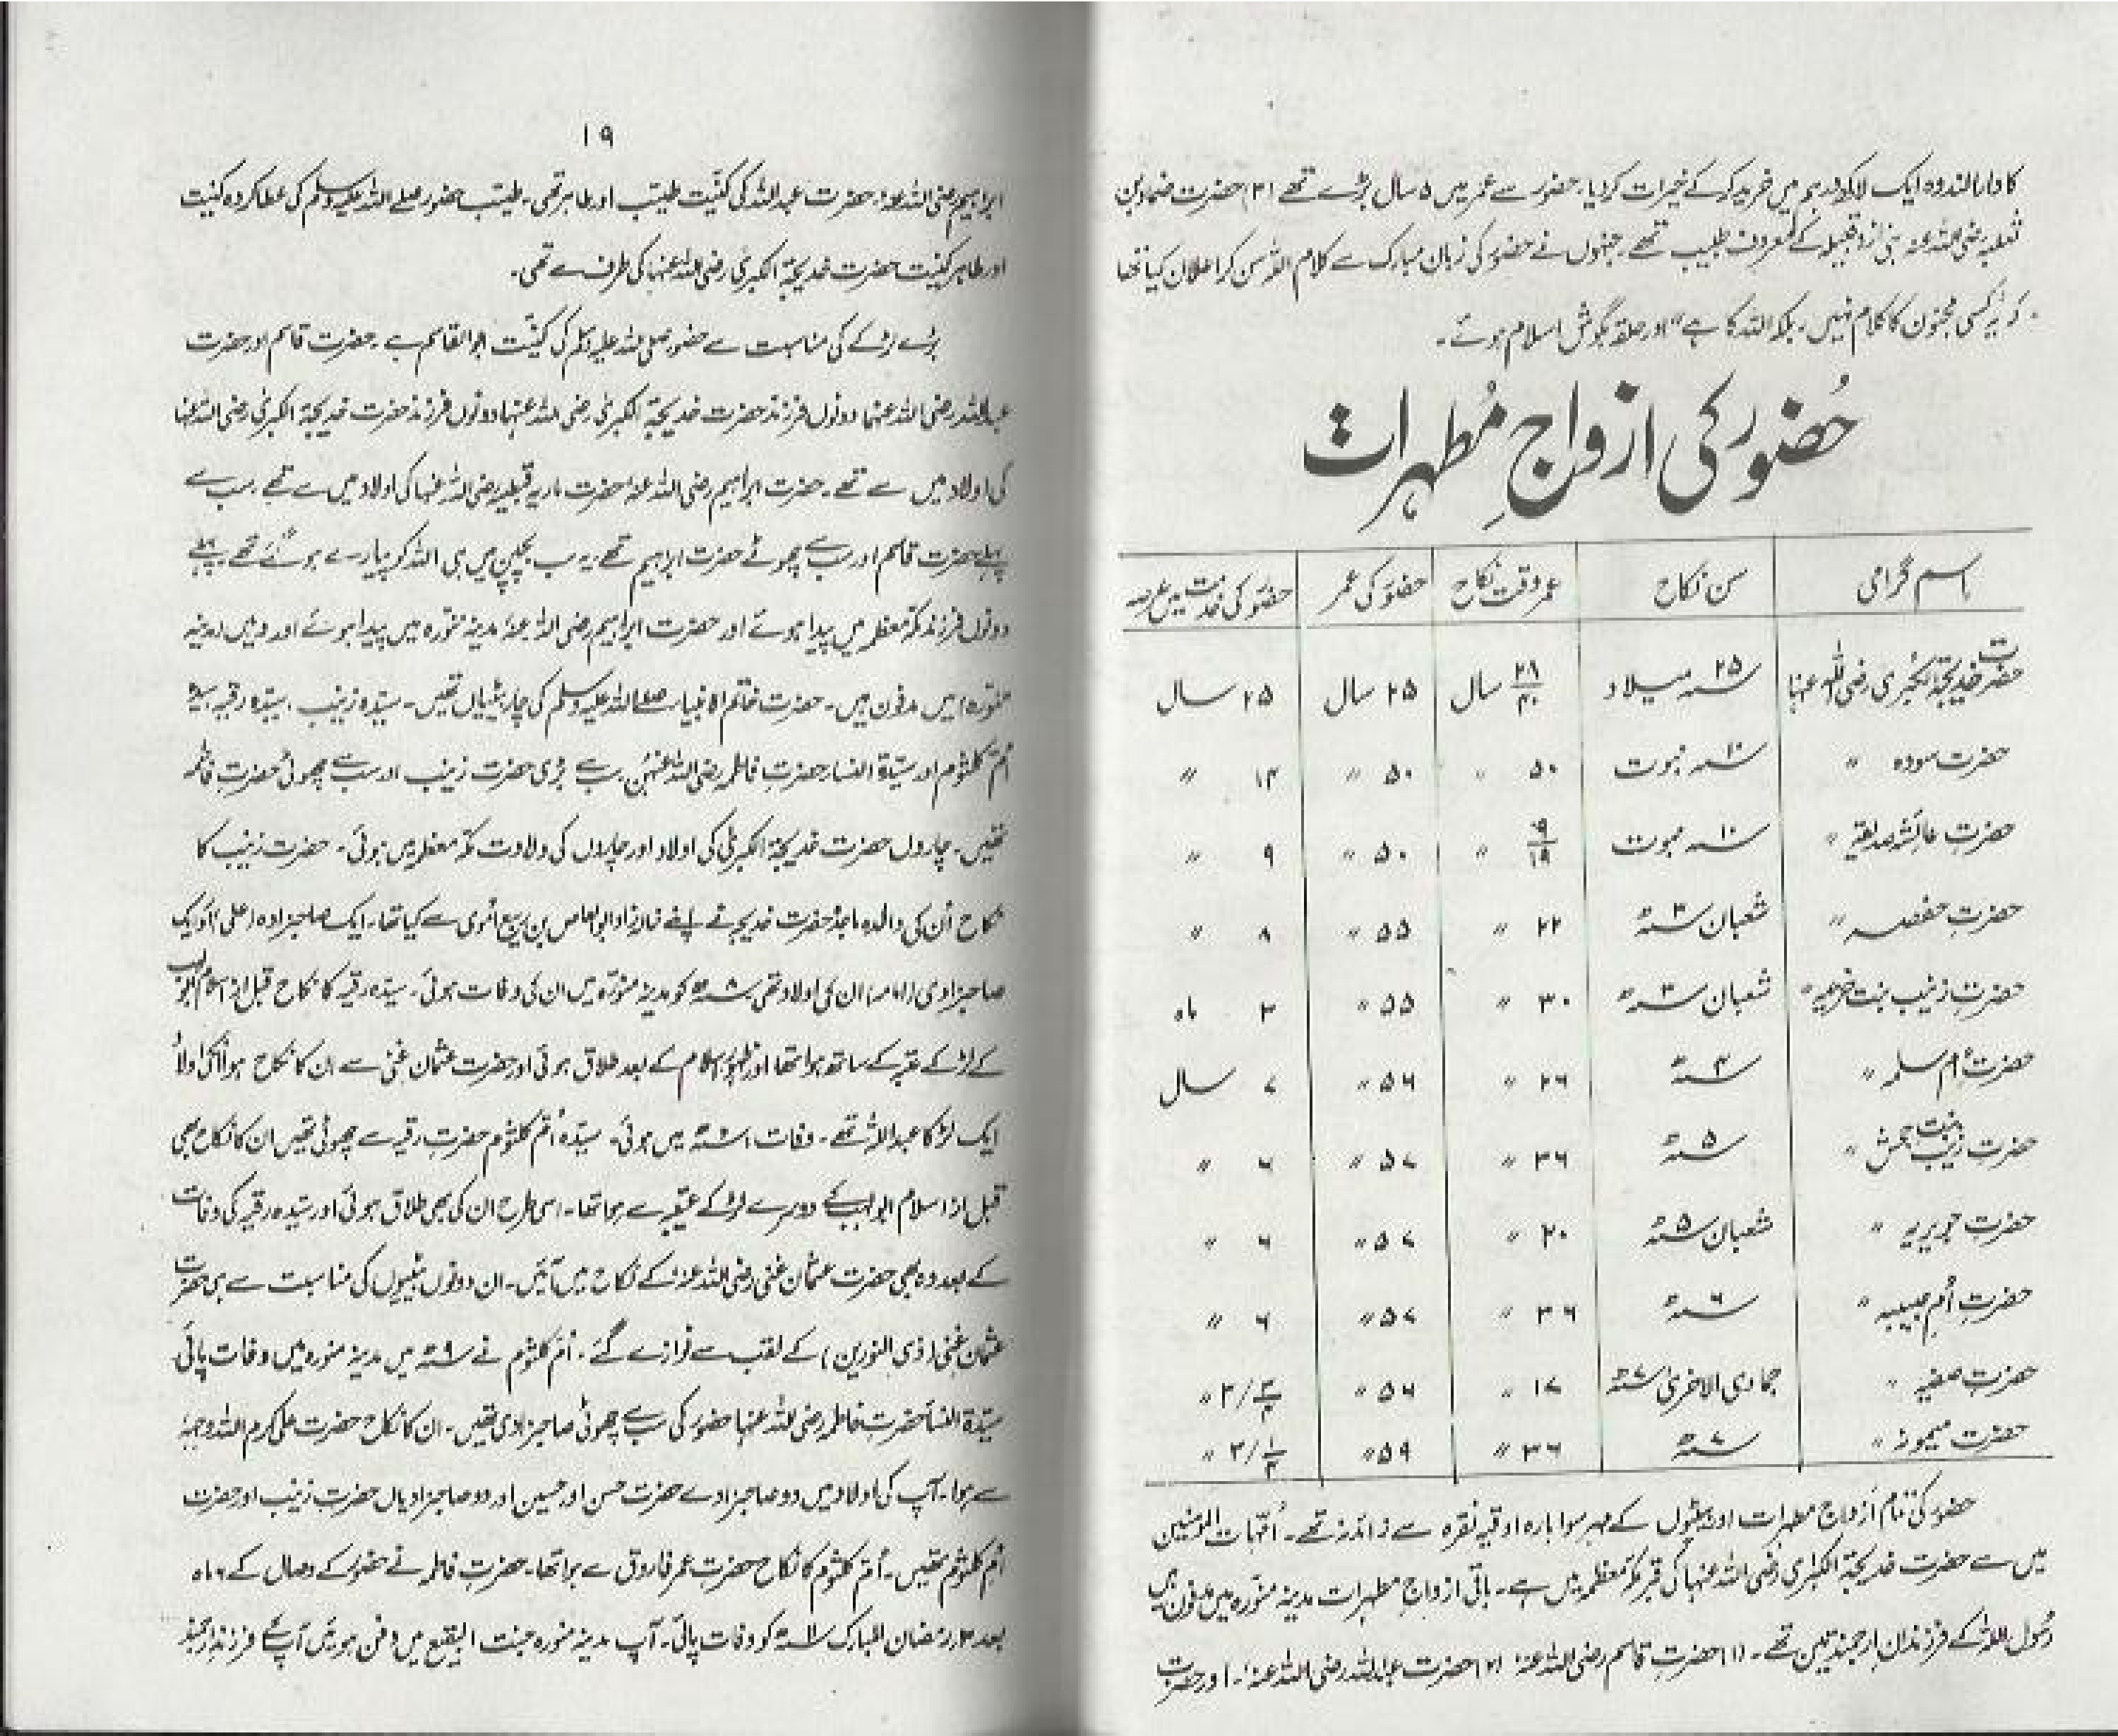 کا دارالندوہ ایک لاکھ درہم میں خرید کر کے خیرات کر دیا، حضورؐ سے عمر میں ۵ سال بڑے تھے (۳) حضرت ضماد بن
ثعلبہ رضی اللہ عنہ بنی ازد قبیلہ کے معروف طبیب تھے، جنہوں نے حضورؐ کی زبان مبارک سے کلام اللہ سن کر اعلان کیا تھا
کہ یہ کسی مجنون کا کلام نہیں۔ بلکہ اللہ کا ہے" اور حلقہ بگوش اسلام ہوئے۔
حُضور کی ازواجِ مُطہرات
اسم گرامی سن نکاح عمر وقت نکاح حضورؐ کی عمر حضورؐ کی خدمت میں عرصہ
حضرت خدیجۃ الکبریٰ رضی اللہ عنہا ۲۵ سنہ میلاد ۲۸/۴۰ سال ۲۵ سال ۲۵ سال
حضرت سودہ " ۱۰ سنہ نبوت ۵۰ " ۵۰ " ۱۴ "
حضرت عائشہ صدیقہ " ۱۰ سنہ نبوت ۹/۱۹ " ۵۰ " ۹ "
حضرت حفصہ " شعبان ۳ سنہ ھ ۲۲ " ۵۵ " ۸ "
حضرت زینب بنت خزیمہ " شعبان ۳ سنہ ھ ۳۰ " ۵۵ " ۳ ماہ
حضرت اُم سلمہ " ۴ سنہ ھ ۲۶ " ۵۶ " ۷ سال
حضرت زینب بنت جحش " ۵ سنہ ھ ۳۶ " ۵۷ " ۶ "
حضرت جویریہ " شعبان ۵ سنہ ھ ۲۰ " ۵۷ " ۶ "
حضرت اُم حبیبہ " ۶ سنہ ھ ۳۶ " ۵۷ " ۶ "
حضرت صفیہ " جمادی الاخریٰ ۷ سنہ ھ ۱۷ " ۵۶ " ۳/۴ ۳ "
حضرت میمونہ " ۷ سنہ ھ ۳۶ " ۵۹ " ۱/۴ ۳ "
حضورؐ کی تمام ازواج مطہرات اور بیٹیوں کے مہر سوا بارہ اوقیہ نقرہ سے زائد نہ تھے۔ اُمّہات المومنین
میں سے حضرت خدیجۃ الکبریٰ رضی اللہ عنہا کی قبر مکہ معظمہ میں ہے۔ باقی ازواجِ مطہرات مدینہ منورہ میں مدفون ہیں
رسول اللہؐ کے فرزندانِ ارجمند تین تھے۔ (۱) حضرت قاسم رضی اللہ عنہ (۲) حضرت عبداللہ رضی اللہ عنہ۔ اور حضرت
۱۹
ابراہیم رضی اللہ عنہ، حضرت عبداللہ کی کنیّت طیّب اور طاہر تھی۔ طیّب حضور صلے اللہ علیہ وسلم کی عطا کردہ کنیت
اور طاہر کنیّت حضرت خدیجۃ الکبریٰ رضی اللہ عنہا کی طرف سے تھی۔
بڑے لڑکے کی مناسبت سے حضور صلی اللہ علیہ وسلم کی کنیّت ابوالقاسم ہے۔ حضرت قاسم اور حضرت
عبداللہ رضی اللہ عنہما دونوں فرزند حضرت خدیجۃ الکبریٰ رضی اللہ عنہا دونوں فرزند حضرت خدیجۃ الکبریٰ رضی اللہ عنہا
کی اولاد میں سے تھے۔ حضرت ابراہیم رضی اللہ عنہ حضرت ماریہ قبطیہ رضی اللہ عنہا کی اولاد میں سے تھے۔ سب سے
پہلے حضرت قاسم اور سب سے چھوٹے حضرت ابراہیم تھے، یہ سب بچپن میں ہی اللہ کو پیارے ہو گئے تھے، پہلے
دونوں فرزند مکہ معظمہ میں پیدا ہوئے اور حضرت ابراہیم رضی اللہ عنہ مدینہ منورہ میں پیدا ہوئے اور وہیں (مدینہ
منورہ) میں مدفون ہیں۔ حضرت خاتم الانبیاء صلے اللہ علیہ وسلم کی چار بیٹیاں تھیں۔ سیّدہ زینب، سیّدہ رقیہ سیدہ
اُمّ کلثوم اور سیّدۃ النساء حضرت فاطمہ رضی اللہ عنہن سب سے بڑی حضرت زینب اور سب سے چھوٹی حضرت فاطمہ
تھیں۔ چاروں حضرت خدیجۃ الکبریٰ کی اولاد اور چاروں کی ولادت مکہ معظمہ میں ہوئی۔ حضرت زینب کا
نکاح اُن کی والدہ ماجدہ حضرت خدیجہ نے اپنے خالہ زاد ابوالعاص بن ربیع اموی سے کیا تھا۔ ایک صاحبزادہ (علی) اور ایک
صاحبزادی (امامہ) ان کی اولاد تھی ۸ سنہ ھ کو مدینہ منورہ میں ان کی وفات ہوئی۔ سیّدہ رقیہ کا نکاح قبل از اسلام ابولہب
کے لڑکے عتبہ کے ساتھ ہوا تھا اور ظہور اسلام کے بعد طلاق ہوئی اور حضرت عثمان غنی سے ان کا نکاح ہوا انکی اولاد
ایک لڑکا عبداللہ تھے۔ وفات سنہ ھ میں ہوئی۔ سیّدہ اُمّ کلثوم حضرت رقیہ سے چھوٹی تھیں ان کا نکاح بھی
قبل از اسلام ابولہب کے دوسرے لڑکے عتیبہ سے ہوا تھا۔ اسی طرح ان کی بھی طلاق ہوئی اور سیّدہ رقیہ کی وفات
کے بعد وہ بھی حضرت عثمان غنی رضی اللہ عنہ کے نکاح میں آئیں۔ ان دونوں بیبیوں کی مناسبت سے ہی حضرت
عثمان غنی (ذی النورین) کے لقب سے نوازے گئے۔ اُم کلثوم نے ۹ سنہ ھ میں مدینہ منورہ میں وفات پائی
سیّدۃ النساء حضرت فاطمہ رضی اللہ عنہا حضور کی سب سے چھوٹی صاحبزادی تھیں۔ ان کا نکاح حضرت علی کرم اللہ وجہہ
سے ہوا۔ آپ کی اولاد میں دو صاحبزادے حضرت حسن اور حسین اور دو صاحبزادیاں حضرت زینب اور حضرت
اُم کلثوم تھیں۔ اُمّ کلثوم کا نکاح حضرت عمر فاروق سے ہوا تھا۔ حضرت فاطمہ نے حضورؐ کے وصال کے ۶ ماہ
بعد ۳ رمضان المبارک ۱۱ سنہ ھ کو وفات پائی۔ آپ مدینہ منورہ جنت البقیع میں دفن ہوئیں آپ کے فرزند ارجمند